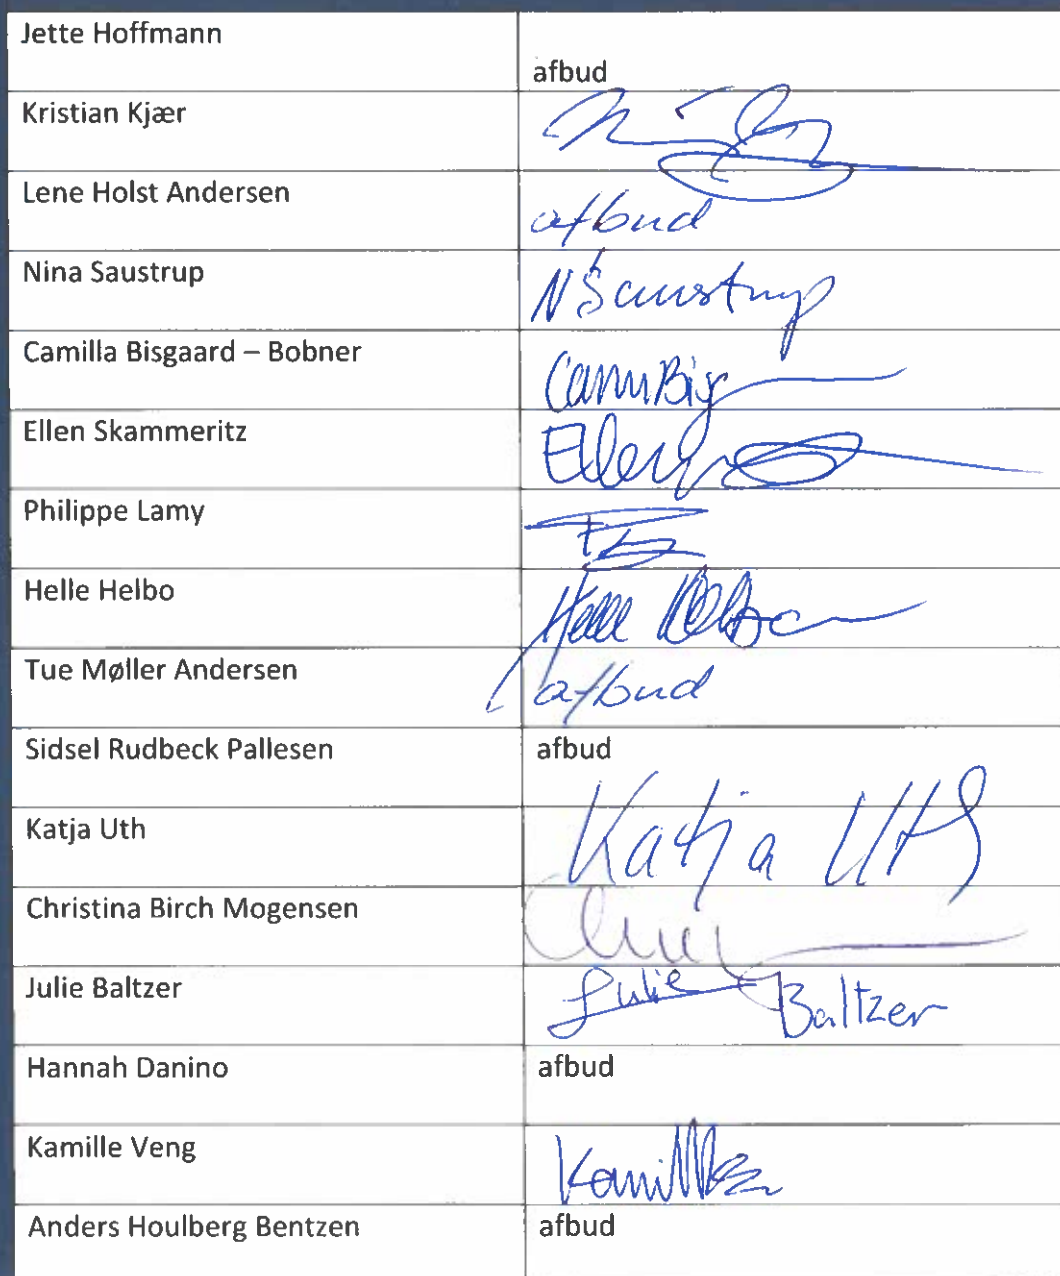 Jette Hoffmann
afbud
Kristian Kjær
Lene Holst Andersen
afbud
Nina Saustrup
NSaustrup
Camilla Bisgaard – Bobner
Ellen Skammeritz
Philippe Lamy
Helle Helbo
Helle Helbo
Tue Møller Andersen
afbud
Sidsel Rudbeck Pallesen
afbud
Katja Uth
Katja Uth
Christina Birch Mogensen
Julie Baltzer
Julie Baltzer
Hannah Danino
afbud
Kamille Veng
Anders Houlberg Bentzen
afbud